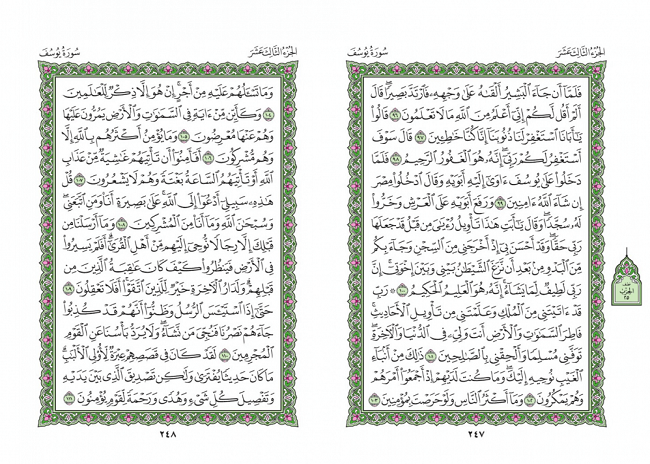 الجزء الثالث عشر
سورة يوسف
فَلَمَّآ أَن جَآءَ ٱلْبَشِيرُ أَلْقَىٰهُ عَلَىٰ وَجْهِهِۦ فَٱرْتَدَّ بَصِيرًا ۖ قَالَ
أَلَمْ أَقُل لَّكُمْ إِنِّىٓ أَعْلَمُ مِنَ ٱللَّهِ مَا لَا تَعْلَمُونَ ٩٦ قَالُوا۟
يَٰٓأَبَانَا ٱسْتَغْفِرْ لَنَا ذُنُوبَنَآ إِنَّا كُنَّا خَٰطِـِٔينَ ٩٧ قَالَ سَوْفَ
أَسْتَغْفِرُ لَكُمْ رَبِّىٓ ۖ إِنَّهُۥ هُوَ ٱلْغَفُورُ ٱلرَّحِيمُ ٩٨ فَلَمَّا
دَخَلُوا۟ عَلَىٰ يُوسُفَ ءَاوَىٰٓ إِلَيْهِ أَبَوَيْهِ وَقَالَ ٱدْخُلُوا۟ مِصْرَ
إِن شَآءَ ٱللَّهُ ءَامِنِينَ ٩٩ وَرَفَعَ أَبَوَيْهِ عَلَى ٱلْعَرْشِ وَخَرُّوا۟
لَهُۥ سُجَّدًا ۖ وَقَالَ يَٰٓأَبَتِ هَٰذَا تَأْوِيلُ رُءْيَٰىَ مِن قَبْلُ قَدْ جَعَلَهَا
رَبِّى حَقًّا ۖ وَقَدْ أَحْسَنَ بِىٓ إِذْ أَخْرَجَنِى مِنَ ٱلسِّجْنِ وَجَآءَ بِكُم
مِّنَ ٱلْبَدْوِ مِنۢ بَعْدِ أَن نَّزَغَ ٱلشَّيْطَٰنُ بَيْنِى وَبَيْنَ إِخْوَتِىٓ ۚ إِنَّ
رَبِّى لَطِيفٌ لِّمَا يَشَآءُ ۚ إِنَّهُۥ هُوَ ٱلْعَلِيمُ ٱلْحَكِيمُ ١٠٠ رَبِّ
قَدْ ءَاتَيْتَنِى مِنَ ٱلْمُلْكِ وَعَلَّمْتَنِى مِن تَأْوِيلِ ٱلْأَحَادِيثِ ۚ
فَاطِرَ ٱلسَّمَٰوَٰتِ وَٱلْأَرْضِ أَنتَ وَلِىِّۦ فِى ٱلدُّنْيَا وَٱلْءَاخِرَةِ ۖ
تَوَفَّنِى مُسْلِمًا وَأَلْحِقْنِى بِٱلصَّٰلِحِينَ ١٠١ ذَٰلِكَ مِنْ أَنۢبَآءِ
ٱلْغَيْبِ نُوحِيهِ إِلَيْكَ ۖ وَمَا كُنتَ لَدَيْهِمْ إِذْ أَجْمَعُوٓا۟ أَمْرَهُمْ
وَهُمْ يَمْكُرُونَ ١٠٢ وَمَآ أَكْثَرُ ٱلنَّاسِ وَلَوْ حَرَصْتَ بِمُؤْمِنِينَ ١٠٣
٢٤٧
نصف
الحزب
٢٥
الجزء الثالث عشر
سورة يوسف
وَمَا تَسْـَٔلُهُمْ عَلَيْهِ مِنْ أَجْرٍ ۚ إِنْ هُوَ إِلَّا ذِكْرٌ لِّلْعَٰلَمِينَ
١٠٤ وَكَأَيِّن مِّنْ ءَايَةٍ فِى ٱلسَّمَٰوَٰتِ وَٱلْأَرْضِ يَمُرُّونَ عَلَيْهَا
وَهُمْ عَنْهَا مُعْرِضُونَ ١٠٥ وَمَا يُؤْمِنُ أَكْثَرُهُم بِٱللَّهِ إِلَّا
وَهُم مُّشْرِكُونَ ١٠٦ أَفَأَمِنُوٓا۟ أَن تَأْتِيَهُمْ غَٰشِيَةٌ مِّنْ عَذَابِ
ٱللَّهِ أَوْ تَأْتِيَهُمُ ٱلسَّاعَةُ بَغْتَةً وَهُمْ لَا يَشْعُرُونَ ١٠٧ قُلْ
هَٰذِهِۦ سَبِيلِىٓ أَدْعُوٓا۟ إِلَى ٱللَّهِ ۚ عَلَىٰ بَصِيرَةٍ أَنَا۠ وَمَنِ ٱتَّبَعَنِى ۖ
وَسُبْحَٰنَ ٱللَّهِ وَمَآ أَنَا۠ مِنَ ٱلْمُشْرِكِينَ ١٠٨ وَمَآ أَرْسَلْنَا مِن
قَبْلِكَ إِلَّا رِجَالًا نُّوحِىٓ إِلَيْهِم مِّنْ أَهْلِ ٱلْقُرَىٰٓ ۗ أَفَلَمْ يَسِيرُوا۟
فِى ٱلْأَرْضِ فَيَنظُرُوا۟ كَيْفَ كَانَ عَٰقِبَةُ ٱلَّذِينَ مِن
قَبْلِهِمْ ۗ وَلَدَارُ ٱلْءَاخِرَةِ خَيْرٌ لِّلَّذِينَ ٱتَّقَوْا۟ ۗ أَفَلَا تَعْقِلُونَ ١٠٩
حَتَّىٰٓ إِذَا ٱسْتَيْـَٔسَ ٱلرُّسُلُ وَظَنُّوٓا۟ أَنَّهُمْ قَدْ كُذِبُوا۟
جَآءَهُمْ نَصْرُنَا فَنُجِّىَ مَن نَّشَآءُ ۖ وَلَا يُرَدُّ بَأْسُنَا عَنِ ٱلْقَوْمِ
ٱلْمُجْرِمِينَ ١١٠ لَقَدْ كَانَ فِى قَصَصِهِمْ عِبْرَةٌ لِّأُو۟لِى ٱلْأَلْبَٰبِ ۗ
مَا كَانَ حَدِيثًا يُفْتَرَىٰ وَلَٰكِن تَصْدِيقَ ٱلَّذِى بَيْنَ يَدَيْهِ
وَتَفْصِيلَ كُلِّ شَىْءٍ وَهُدًى وَرَحْمَةً لِّقَوْمٍ يُؤْمِنُونَ ١١١
٢٤٨